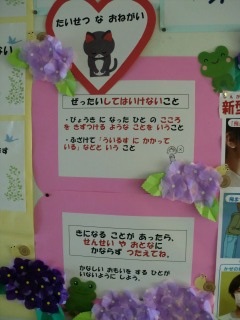 たいせつ な おねがい
ぜったいしてはいけないこと
・びょうき に なった ひと の こころ
を きずつける ような ことを いうこと
・ふざけて「ういるす に かかって
いる」などと いう こと
きになる ことが あったら、
せんせい や おとなに
かならず つたえてね。
かなしい おもいを する ひとが
いないように しよう。
新型